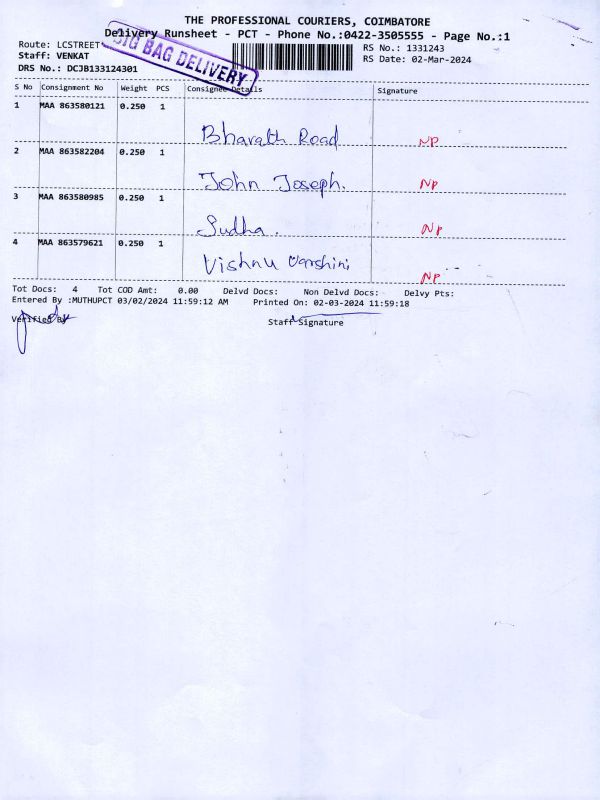 THE PROFESSIONAL COURIERS, COIMBATORE
Delivery Runsheet - PCT - Phone No.:0422-3505555 - Page No.:1
Route: LCSTREET
BIG BAG DELIVERY
RS No.: 1331243
Staff: VENKAT
RS Date: 02-Mar-2024
DRS No.: DCJB133124301
S No Consignment No Weight PCS Consignee Details Signature
1 MAA 863580121 0.250 1
Bharath Road NP
2 MAA 863582204 0.250 1
John Joseph. NP
3 MAA 863580985 0.250 1
Sudha. NP
4 MAA 863579621 0.250 1
Vishnu Varshini NP
Tot Docs: 4 Tot COD Amt: 0.00 Delvd Docs: Non Delvd Docs: Delvy Pts:
Entered By :MUTHUPCT 03/02/2024 11:59:12 AM Printed On: 02-03-2024 11:59:18
Verified By
Staff Signature